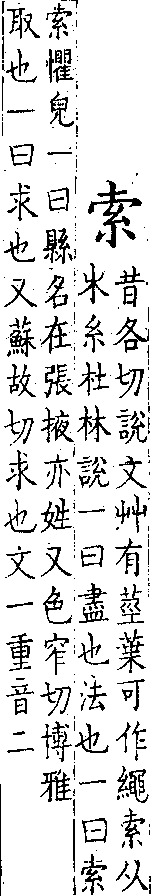 索
昔各切說文艸有莖葉可作繩索从
𣎵糸杜林說一曰盡也法也一曰索
索懼兒一曰縣名在張掖亦姓又色窄切博雅
取也一曰求也又蘇故切求也文一重音二